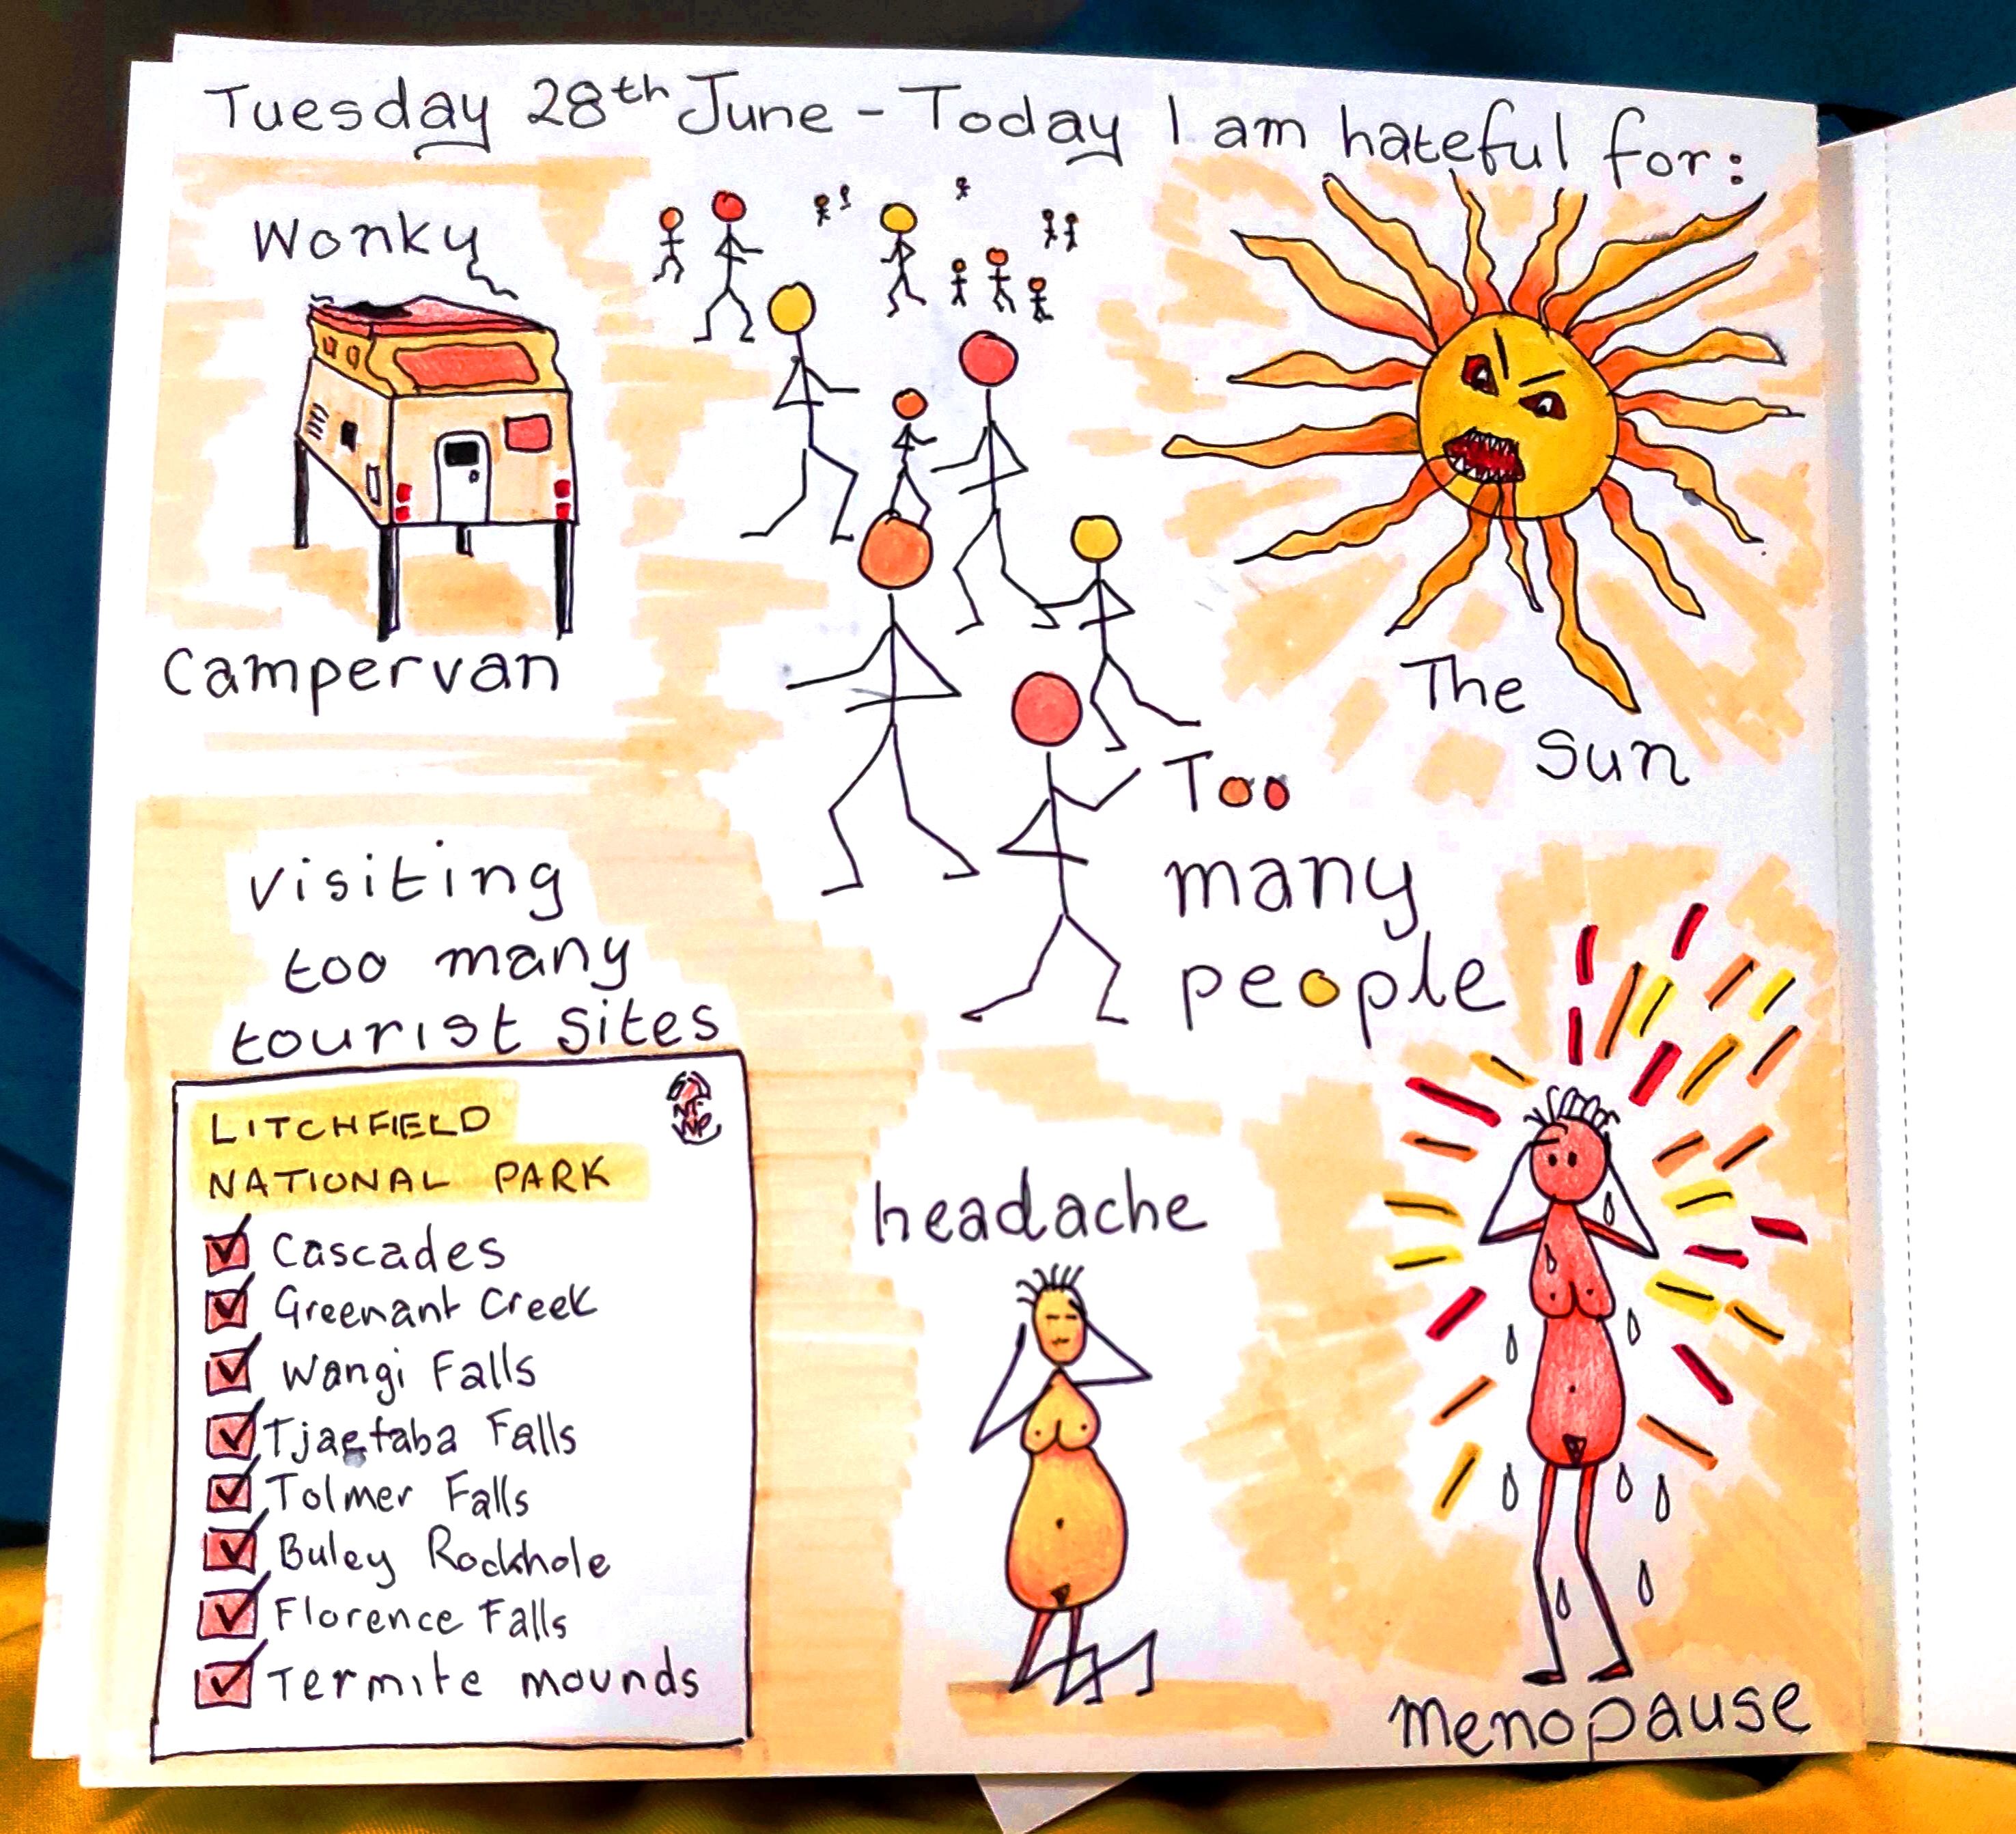 Tuesday 28th June - Today I am hateful for:
Wonky
Campervan
The
Sun
Too
many
people
visiting
too many
tourist sites
LITCHFIELD
NATIONAL PARK
NT
NP
Cascades
Greenant Creek
Wangi Falls
Tjaetaba Falls
Tolmer Falls
Buley Rockhole
Florence Falls
Termite mounds
headache
menopause